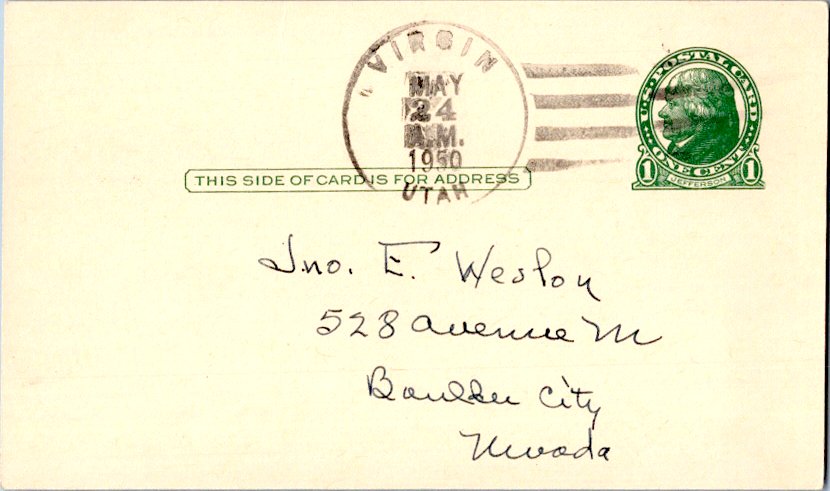 VIRGIN
MAY
24
A.M.
1950
UTAH
U.S. POSTAL CARD
1 ONE CENT 1
JEFFERSON
THIS SIDE OF CARD IS FOR ADDRESS
Jno. E. Weston
528 Avenue M
Boulder City
Nevada